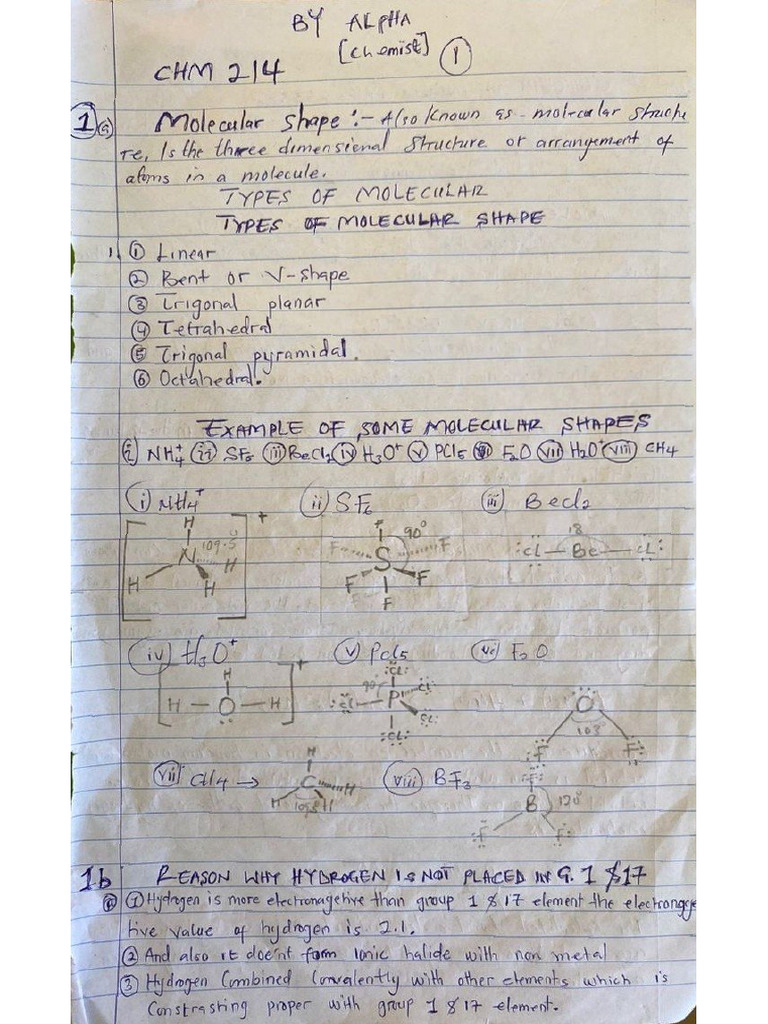 BY ALPHA
[Chemist] ①
CHM 214
1(a) Molecular shape :- Also known as molecular structu
re, Is the three dimensional structure or arrangement of
atoms in a molecule.
TYPES OF MOLECULAR
TYPES OF MOLECULAR SHAPE
① Linear
② Bent or V-shape
③ Trigonal planar
④ Tetrahedral
⑤ Trigonal pyramidal.
⑥ Octahedral.
EXAMPLE OF SOME MOLECULAR SHAPES
(i) NH4+ (ii) SF6 (iii) BeCl2 (iv) H3O+ (v) PCl5 F2O (vii) H2O+ (viii) CH4
(i) NH4+ (ii) SF6 (iii) BeCl2
[H N 109.5 H H H]+
F 90° F F S F F F
18 :Cl — Be — Cl:
(iv) H3O+ (v) PCl5 (vi) F2O
[H — O — H H]+
:Cl: 90° Cl P Cl Cl :Cl:
O 103° F F
(vii) CH4 → (viii) BF3
H C H H H
F B 120° F F
1b REASON WHY HYDROGEN IS NOT PLACED IN G. 1 & 17
① Hydrogen is more electronagetive than group 1 & 17 element the electronage
tive value of hydrogen is 2.1.
② And also it does'nt form Ionic halide with non metal
③ Hydrogen Combined Covalently with other elements which is
Constrasting proper with group 1 & 17 element.